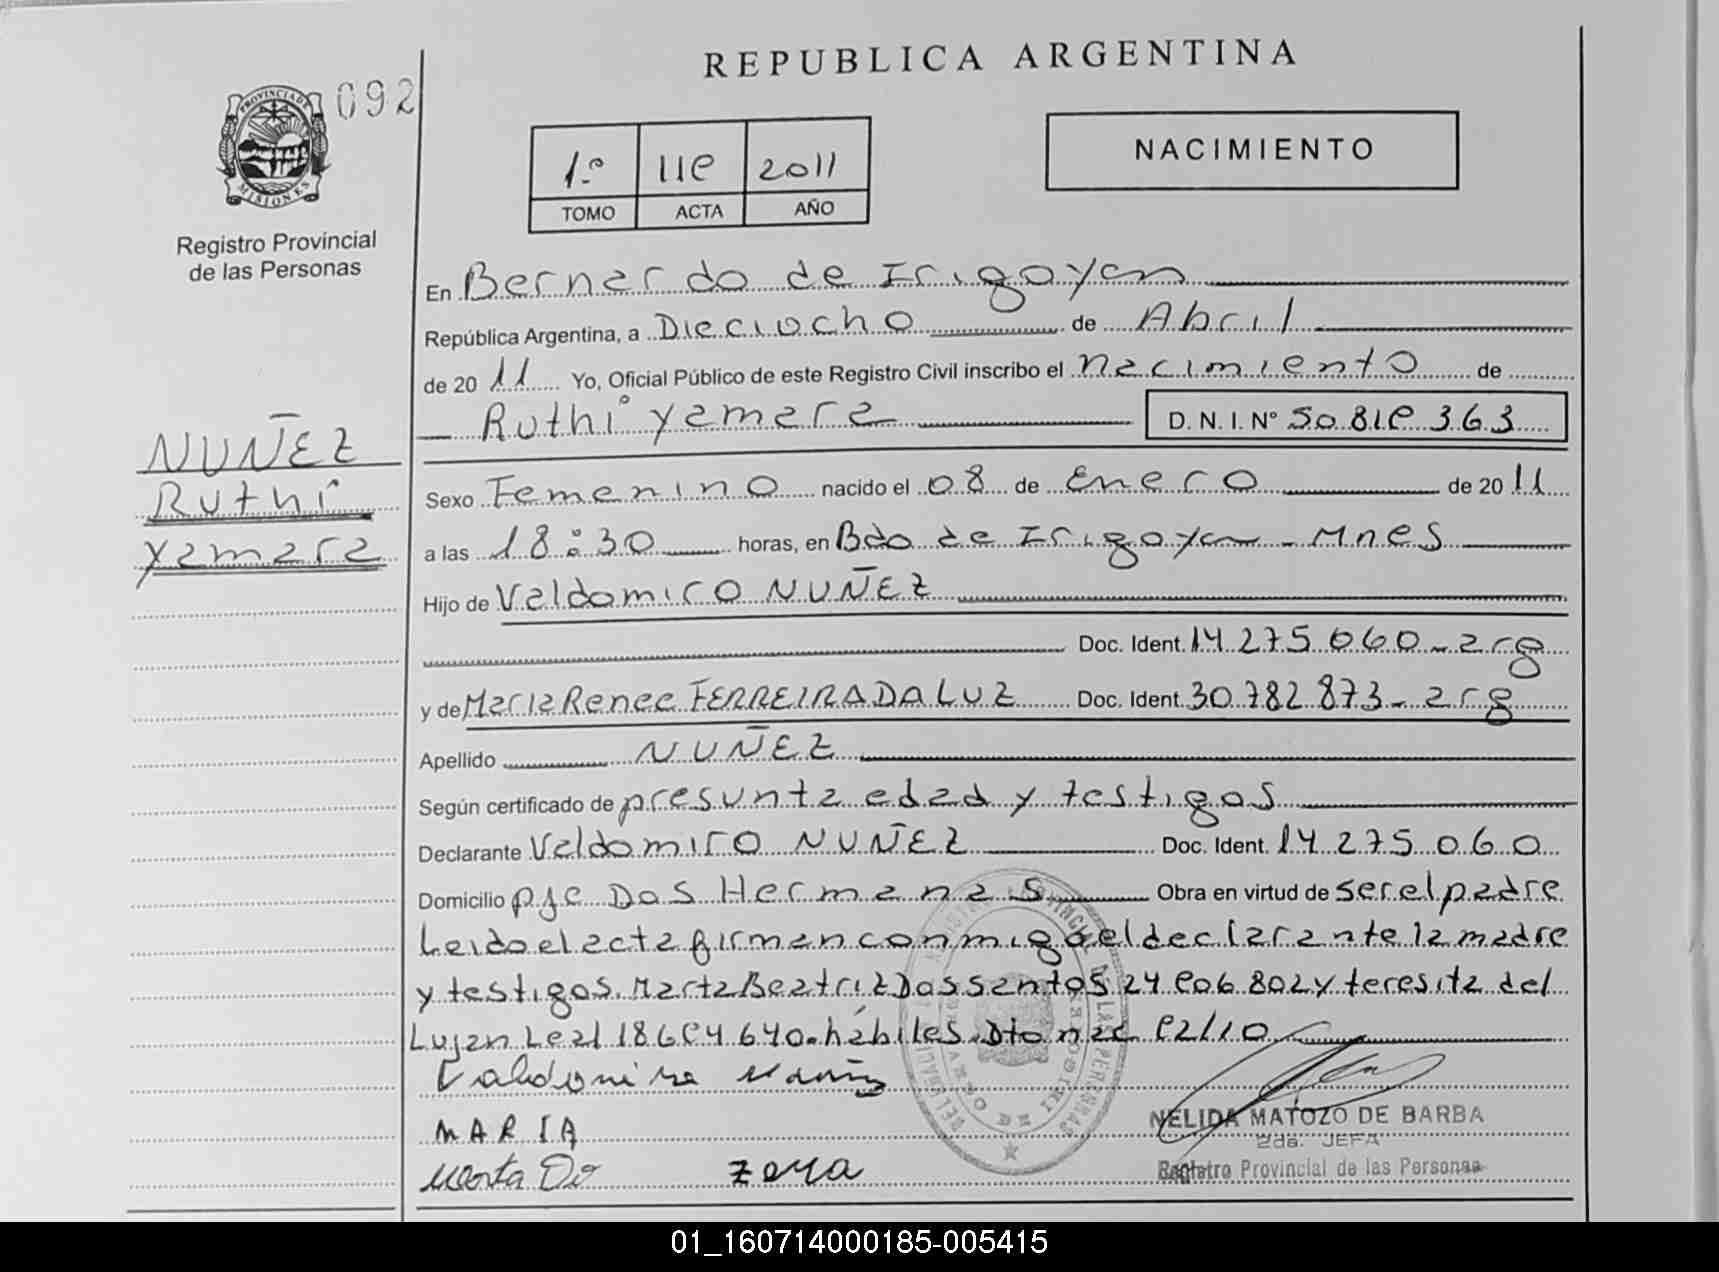 REPUBLICA ARGENTINA
092
PROVINCIA DE MISIONES
Registro Provincial
de las Personas
1º 11e 2011
TOMO ACTA AÑO
NACIMIENTO
En Bernardo de Irigoyen
República Argentina, a Dieciocho de Abril
de 20 11 Yo, Oficial Público de este Registro Civil inscribo el nacimiento de
Ruthi Yamara D. N. I. Nº 50.81e.363
NUÑEZ
Ruthi
Yamara
Sexo Femenino nacido el 08 de Enero de 20 11
a las 18:30 horas, en Bdo de Irigoyen - Mnes
Hijo de Valdomiro NUÑEZ
Doc. Ident. 14.275.060 - arg
y de Maria Renee FERREIRA DA LUZ Doc. Ident. 30.782.873 - arg
Apellido NUÑEZ
Según certificado de presunta edad y testigos
Declarante Valdomiro NUÑEZ Doc. Ident. 14.275.060
Domicilio pje Dos Hermanas Obra en virtud de ser el padre
Leido el acta firman conmigo el declarante la madre
y testigos. Marta Beatriz Dos santos 24 e06.802 y teresita del
Lujan Leal 18.6e4.640. hábiles. Dto nac e2/10
MARIA
Marta Do
NELIDA MATOZO DE BARBA
2da. JEFA
Registro Provincial de las Personas
01_160714000185-005415